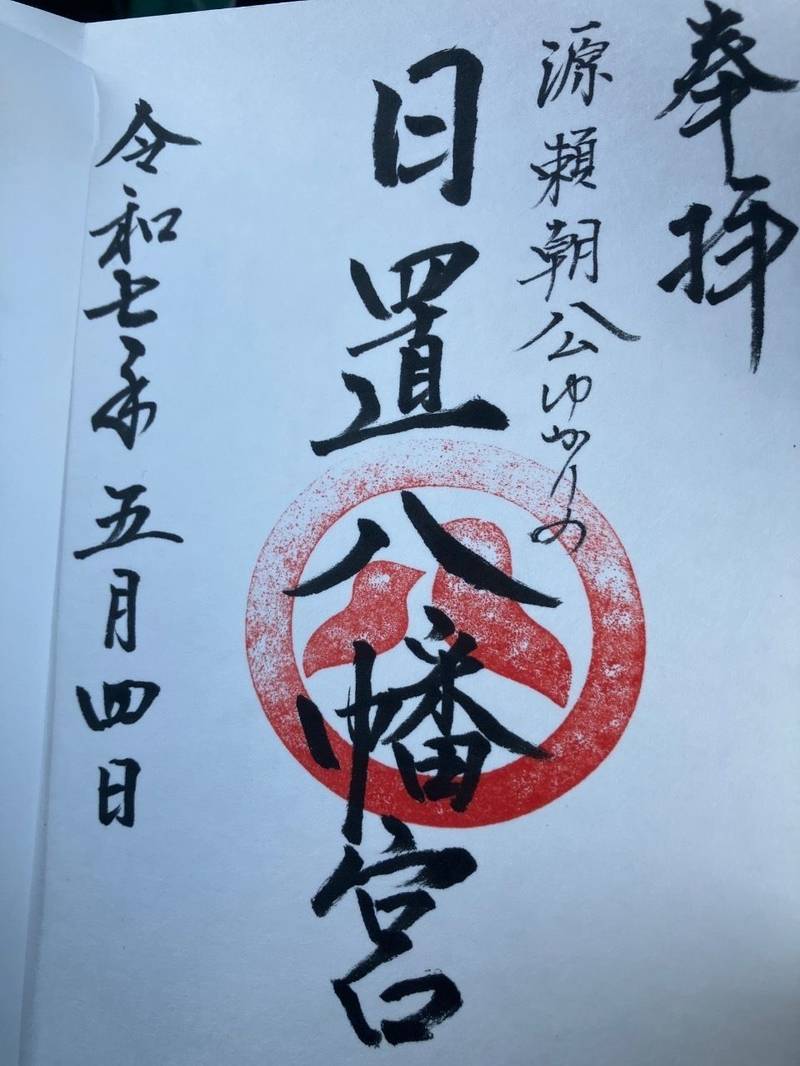 奉拝
源頼朝公ゆかりの
日置八幡宮
令和七年五月四日